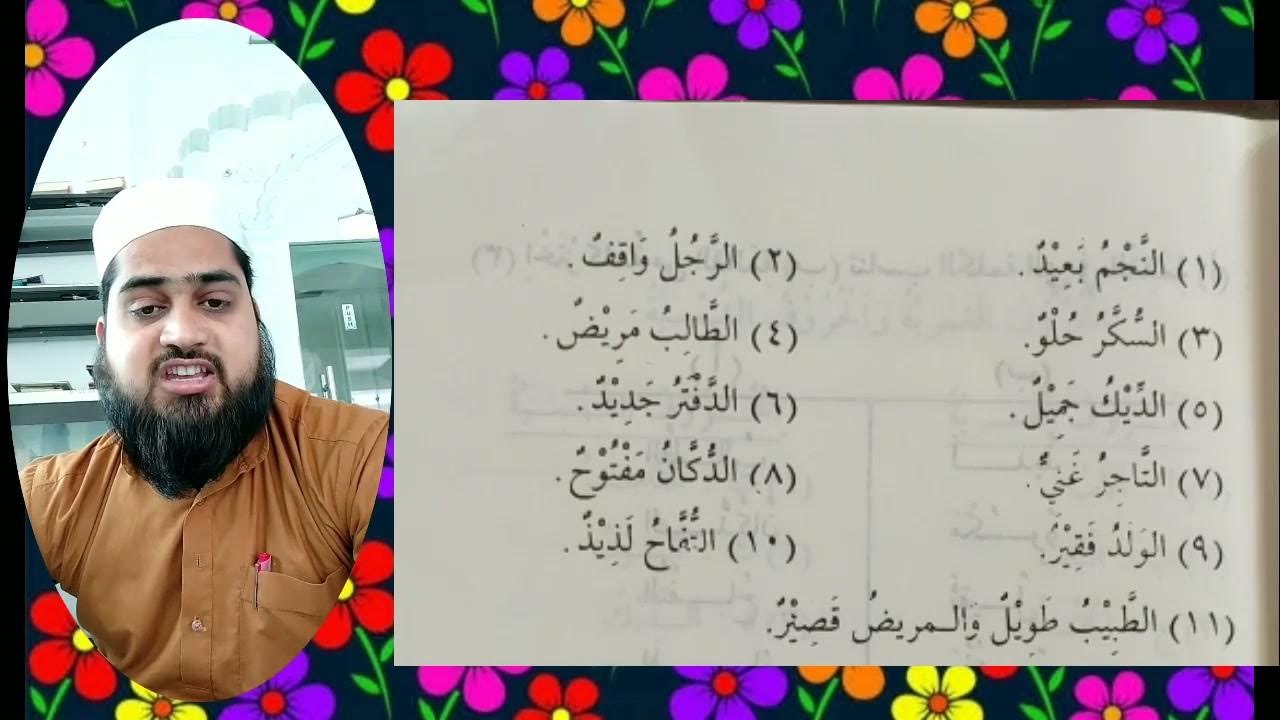 (١) النَّجْمُ بَعِيْدٌ. (٢) الرَّجُلُ وَاقِفٌ.
(٣) السُّكَّرُ حُلْوٌ. (٤) الطَّالِبُ مَرِيْضٌ.
(٥) الدِّيْكُ جَمِيْلٌ. (٦) الدَّفْتَرُ جَدِيْدٌ.
(٧) التَّاجِرُ غَنِيٌّ. (٨) الدُّكَّانُ مَفْتُوْحٌ.
(٩) الوَلَدُ فَقِيْرٌ. (١٠) التُّفَّاحُ لَذِيْذٌ.
(١١) الطَّبِيْبُ طَوِيْلٌ وَالـمريضُ قَصِيْرٌ.
PUSH